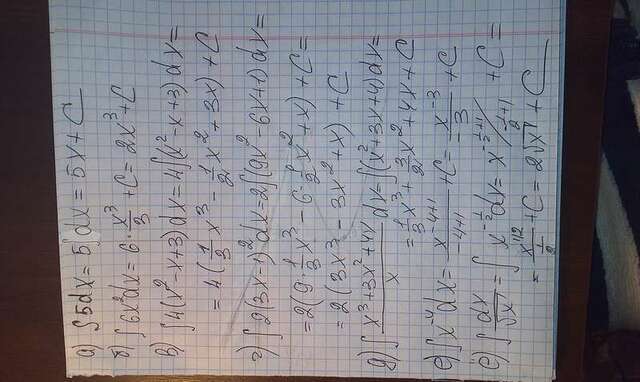 а) ∫5dx = 5∫dx = 5x + C
б) ∫6x²dx = 6·x³/3 + C = 2x³ + C
в) ∫4(x²-x+3)dx = 4∫(x²-x+3)dx =
= 4(1/3 x³ - 1/2 x² + 3x) + C
г) ∫2(3x-1)²dx = 2∫(9x²-6x+1)dx =
= 2(9·1/3 x³ - 6·1/2 x² + x) + C =
= 2(3x³ - 3x² + x) + C
д) ∫(x³+3x²+4x)/x dx = ∫(x²+3x+4)dx =
= 1/3 x³ + 3/2 x² + 4x + C
е) ∫x⁻⁴dx = x⁻⁴⁺¹/(-4+1) + C = x⁻³/-3 + C
ё) ∫dx/√x = ∫x^(-1/2)dx = x^(-1/2+1)/(-1/2+1) + C =
= x^(1/2)/(1/2) + C = 2√x + C